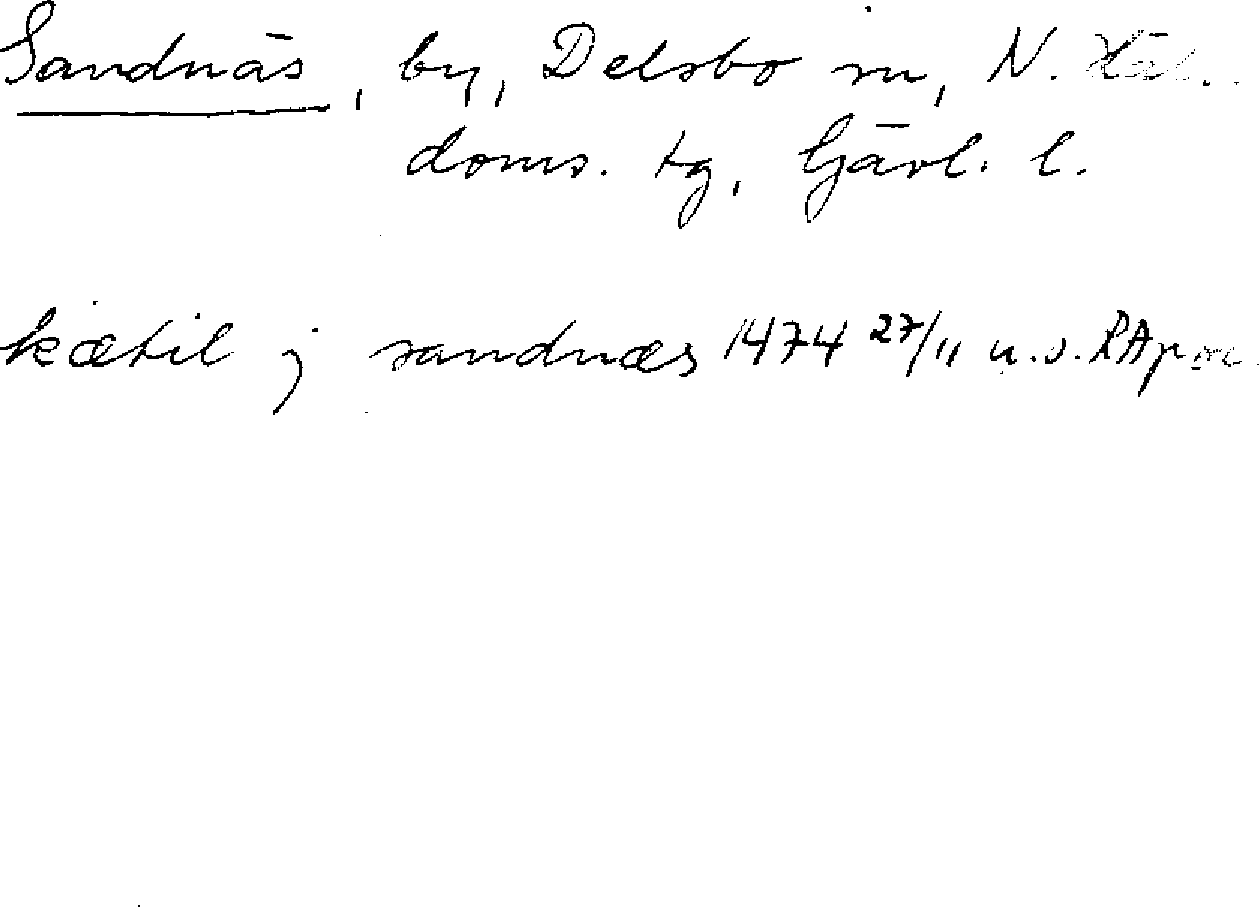 Sandnäs, by, Delsbo sn, N. Häl.
doms. tg, Gävl. l.
kætil j sandnæs 1474 27/11 u.o. RAp